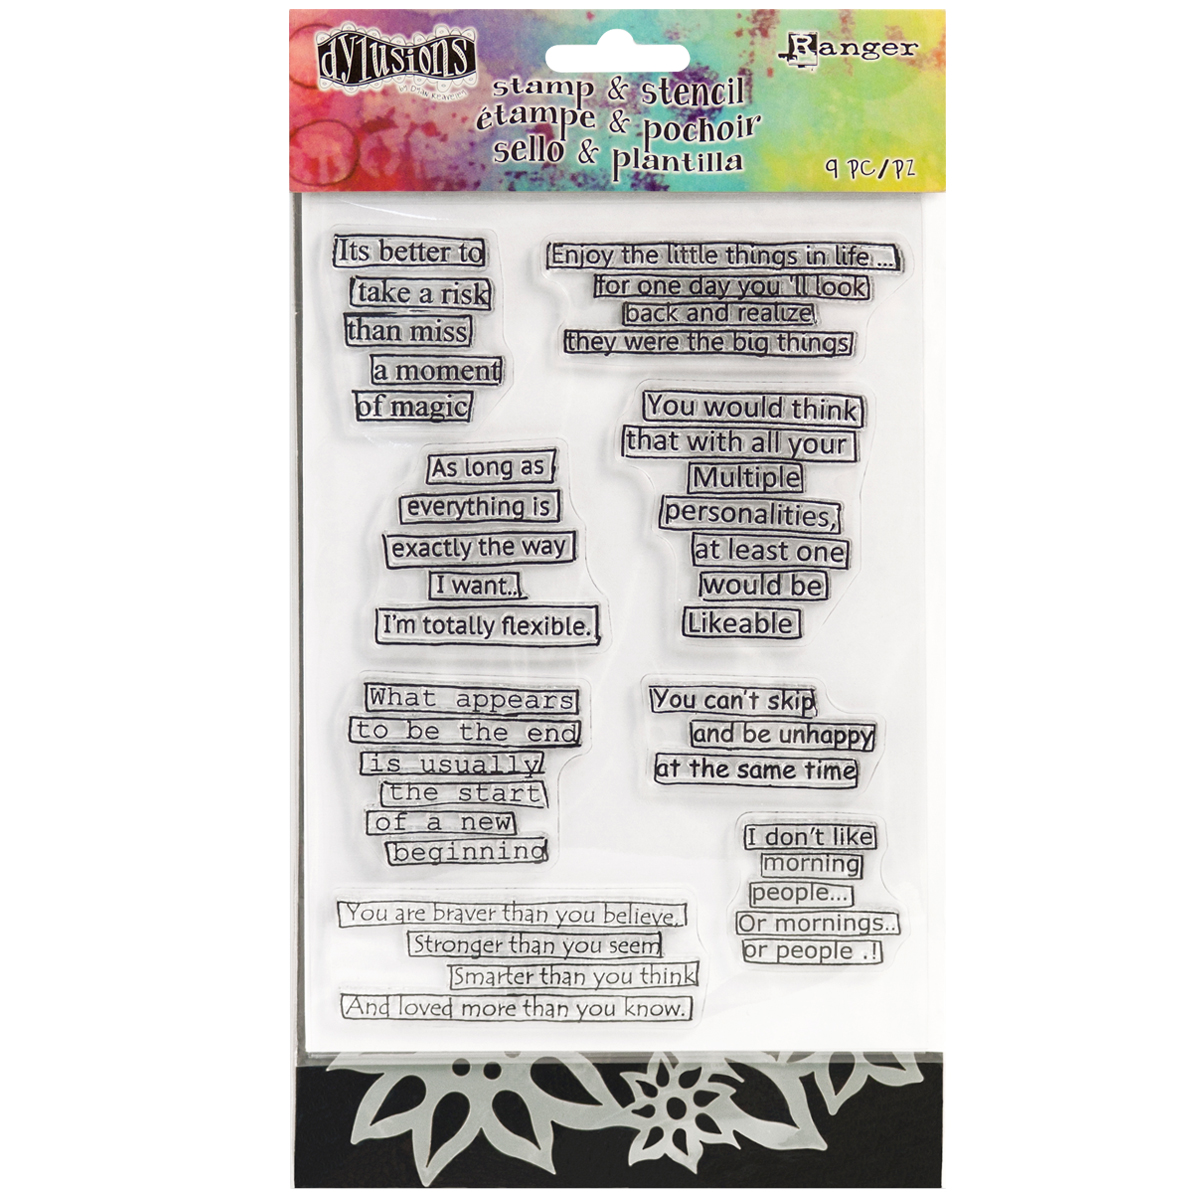 dylusions
by Dyan Reaveley
Ranger
stamp & stencil
étampe & pochoir
sello & plantilla
9 PC/PZ
Its better to
take a risk
than miss
a moment
of magic
Enjoy the little things in life ...
for one day you 'll look
back and realize
they were the big things
You would think
that with all your
Multiple
personalities,
at least one
would be
Likeable
As long as
everything is
exactly the way
I want..
I'm totally flexible.
What appears
to be the end
is usually
the start
of a new
beginning
You can't skip
and be unhappy
at the same time
I don't like
morning
people...
Or mornings..
or people .!
You are braver than you believe.
Stronger than you seem
Smarter than you think
And loved more than you know.